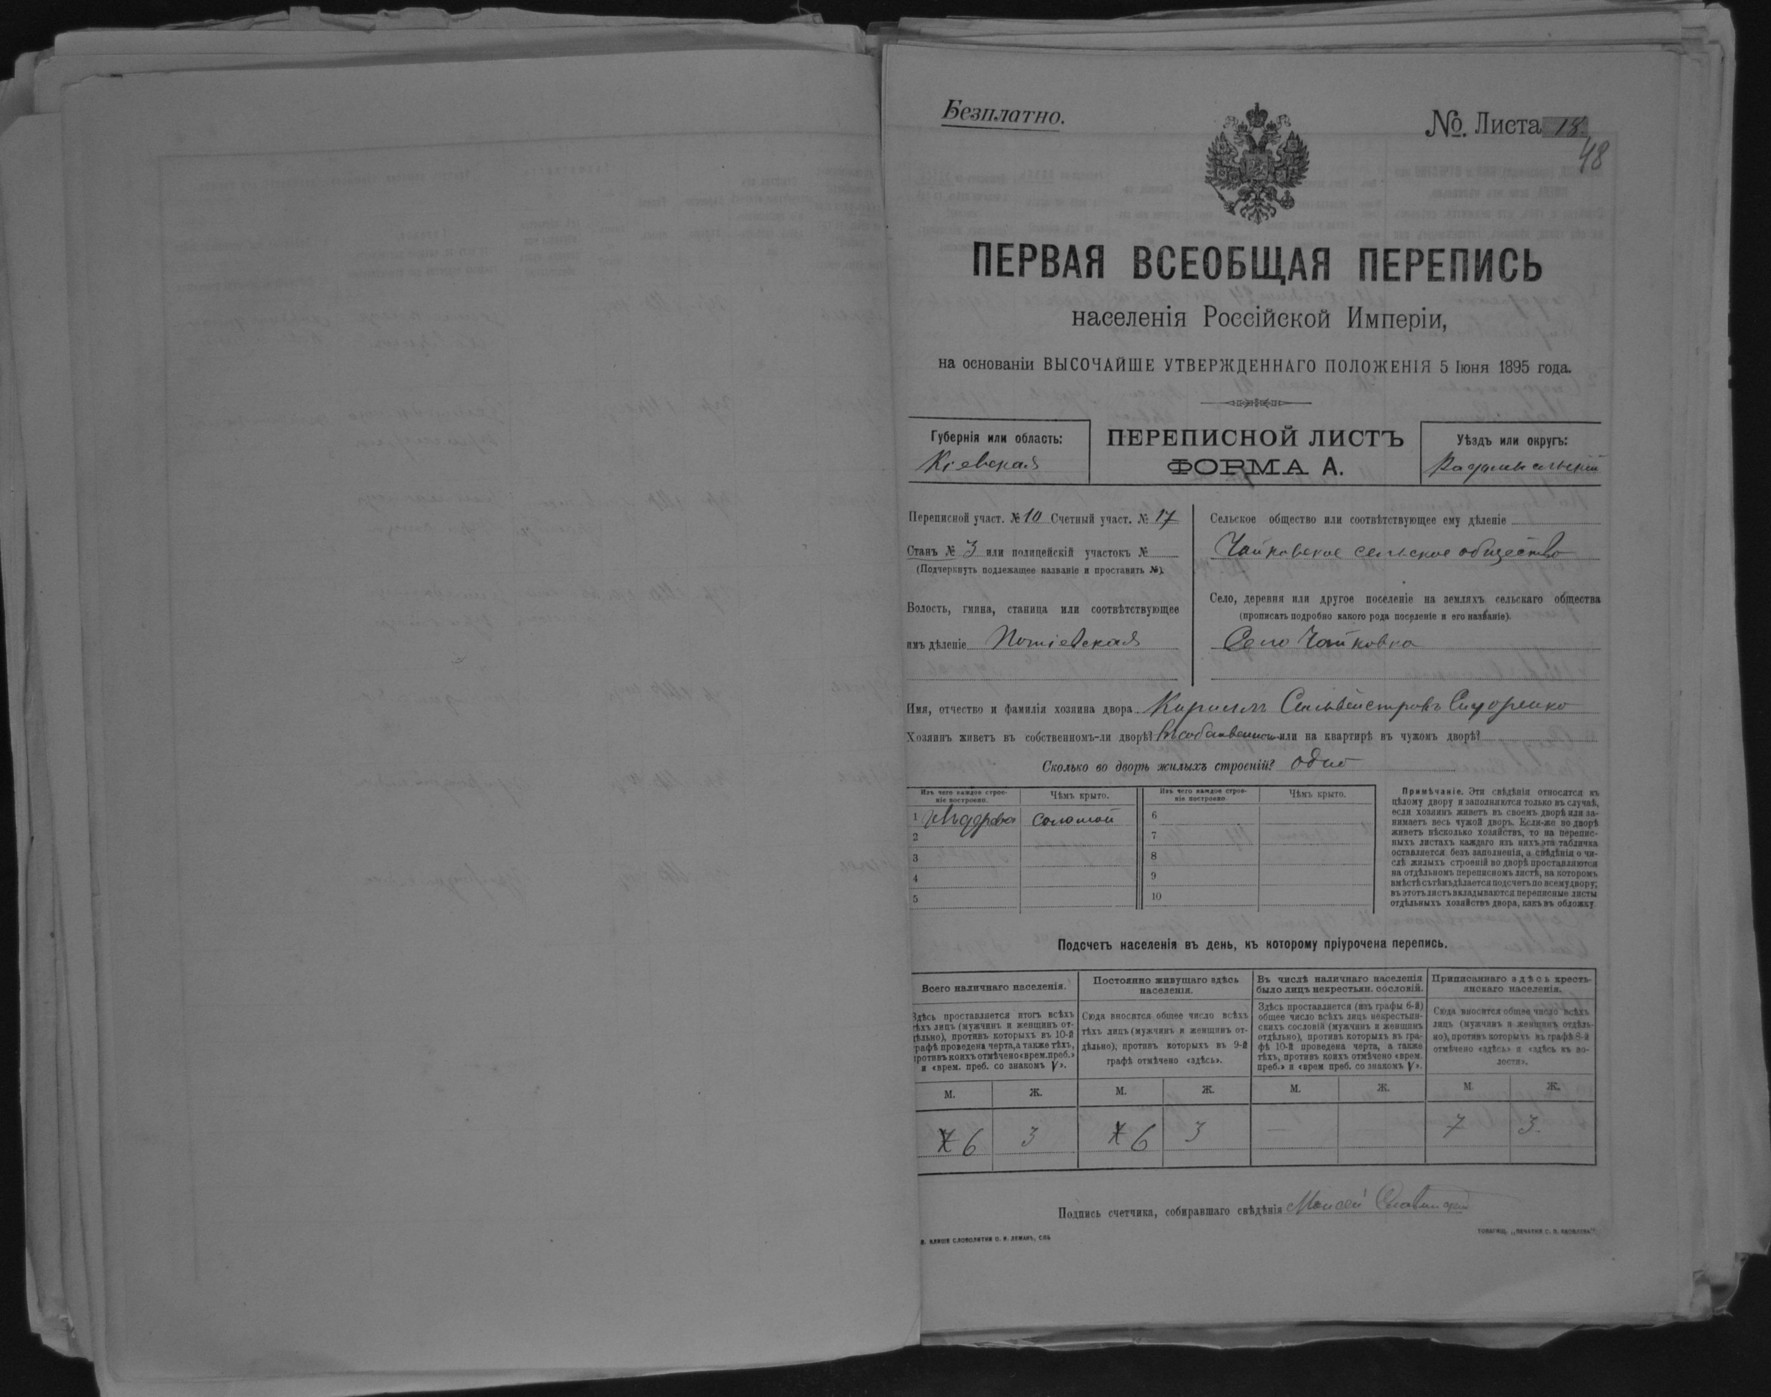 Безплатно.
№. Листа 18
48
ПЕРВАЯ ВСЕОБЩАЯ ПЕРЕПИСЬ
населенія Россійской Имперіи,
на основаніи ВЫСОЧАЙШЕ УТВЕРЖДЕННАГО ПОЛОЖЕНІЯ 5 Іюня 1895 года.
Губернія или область:
Кіевская
ПЕРЕПИСНОЙ ЛИСТЪ
ФОРМА А.
Уѣздъ или округъ:
Радомысльскій
Переписной участ. № 10 Счетный участ. № 17
Станъ № 3 или полицейскій участокъ №
(Подчеркнуть подлежащее названіе и проставить №).
Волость, гмина, станица или соотвѣтствующее
имъ дѣленіе Потіевская
Сельское общество или соотвѣтствующее ему дѣленіе
Чайковское сельское общество
Село, деревня или другое поселеніе на земляхъ сельскаго общества
(прописать подробно какого рода поселеніе и его названіе).
Село Чайковка
Имя, отчество и фамилія хозяина двора Кириллъ Сильвестровъ Сидоренко
Хозяинъ живетъ въ собственномъ-ли дворѣ? Въ собственномъ или на квартирѣ въ чужомъ дворѣ?
Сколько во дворѣ жилыхъ строеній? одно
Изъ чего каждое строеніе построено.
Чѣмъ крыто.
Изъ чего каждое строеніе построено.
Чѣмъ крыто.
1 соломой
2
3
4
5
6
7
8
9
10
Примѣчаніе. Эти свѣдѣнія относятся къ
цѣлому двору и заполняются только въ случаѣ,
если хозяинъ живетъ въ своемъ дворѣ или занимаетъ
весь чужой дворъ. Если-же во дворѣ
живетъ нѣсколько хозяйствъ, то на переписныхъ
листахъ каждаго изъ нихъ эта табличка
оставляется безъ заполненія, а свѣдѣнія о числѣ
жилыхъ строеній во дворѣ проставляются
на отдѣльномъ переписномъ листѣ, на которомъ
вмѣстѣ съ тѣмъ дѣлается подсчетъ по всему двору;
въ этотъ листъ вкладываются переписные листы
отдѣльныхъ хозяйствъ двора, какъ въ обложку.
Подсчетъ населенія въ день, къ которому пріурочена перепись.
Всего наличнаго населенія.
Здѣсь проставляется итогъ всѣхъ
тѣхъ лицъ (мужчинъ и женщинъ отдѣльно),
противъ которыхъ въ 10-й
графѣ проведена черта, а также тѣхъ,
противъ коихъ отмѣчено «врем. преб.»
и «врем. преб. со знакомъ V».
Постоянно живущаго здѣсь
населенія.
Сюда вносится общее число всѣхъ
тѣхъ лицъ (мужчинъ и женщинъ отдѣльно),
противъ которыхъ въ 9-й
графѣ отмѣчено «здѣсь».
Въ числѣ наличнаго населенія
было лицъ некрестьян. сословій.
Здѣсь проставляется (изъ графы 6-й)
общее число всѣхъ лицъ некрестьянскихъ
сословій (мужчинъ и женщинъ
отдѣльно), противъ которыхъ въ графѣ
10-й проведена черта, а также
тѣхъ, противъ коихъ отмѣчено «врем.
преб.» и «врем преб. со знакомъ V».
Приписаннаго здѣсь крестьянскаго
населенія.
Сюда вносится общее число всѣхъ
лицъ (мужчинъ и женщинъ отдѣльно),
противъ которыхъ въ графѣ 8-й
отмѣчено «здѣсь» и «здѣсь въ волости».
М. Ж. М. Ж. М. Ж. М. Ж.
6 3 6 3 — 7 3
Подпись счетчика, собиравшаго свѣдѣнія Моисей